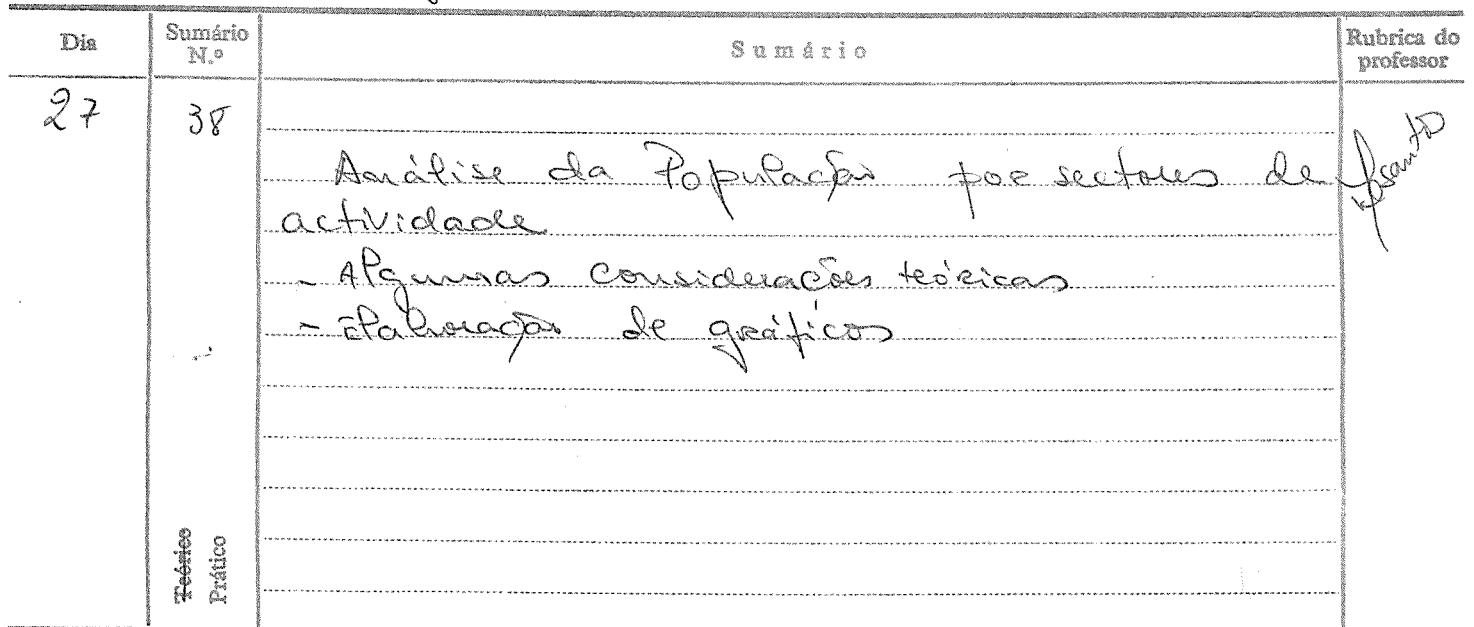 Dia
Sumário N.º
Sumário
Rubrica do professor
27
38
Análise da População por sectores de
actividade
- Algumas considerações teóricas
- Elaboração de gráficos
Teórico
Prático